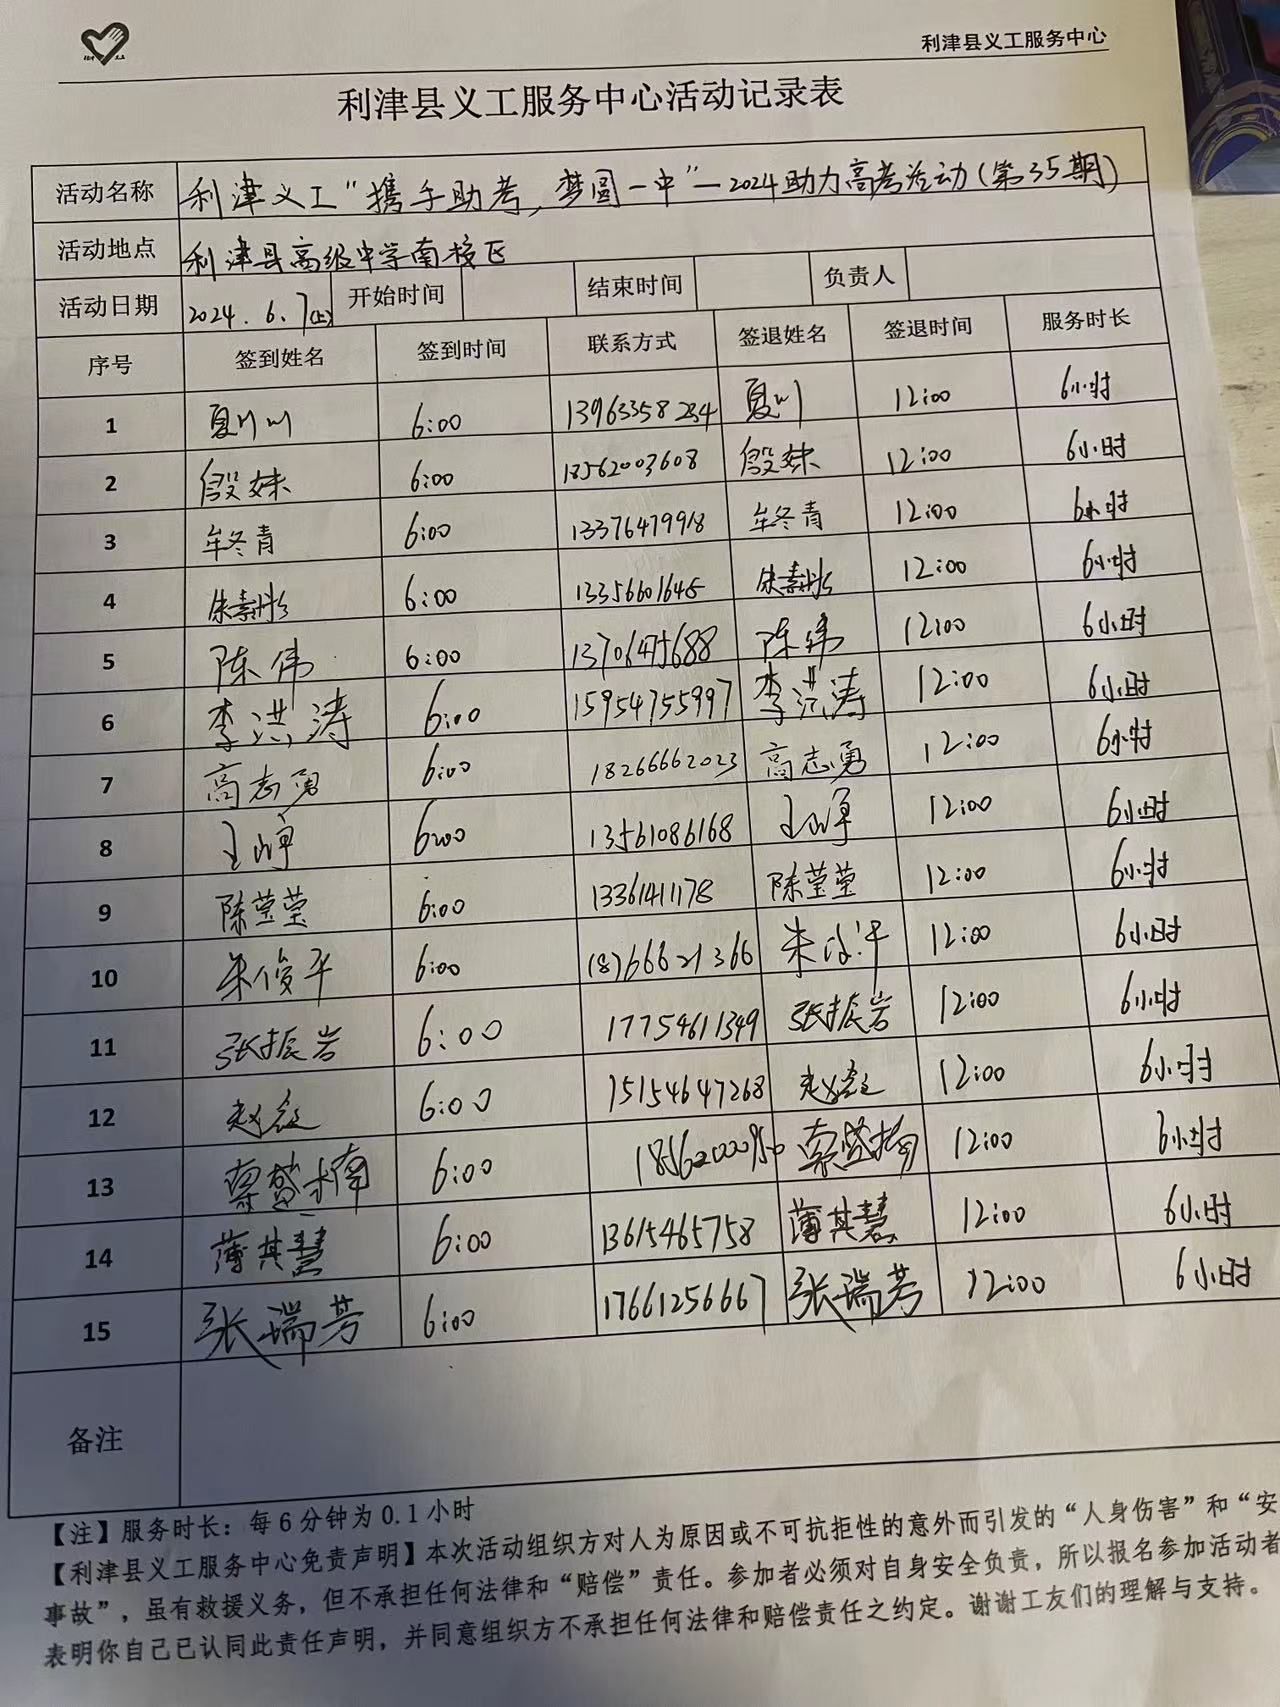 利津县义工服务中心
利津县义工服务中心活动记录表
活动名称 利津义工“携手助考,梦圆一中”—2024助力高考活动(第35期)
活动地点 利津县高级中学南校区
活动日期 2024.6.7(上) 开始时间 结束时间 负责人
序号 签到姓名 签到时间 联系方式 签退姓名 签退时间 服务时长
1 6:00 13963358234 12:00 6小时
2 殷妹 6:00 18562003608 殷妹 12:00 6小时
3 牟冬青 6:00 13376479918 牟冬青 12:00 6小时
4 朱素彬 6:00 13356601645 朱素彬 12:00 6小时
5 陈伟 6:00 陈伟 12:00 6小时
6 李洪涛 6:00 15954755997 李洪涛 12:00 6小时
7 高志勇 6:00 18266662023 高志勇 12:00 6小时
8 6:00 13561086168 12:00 6小时
9 陈莹莹 6:00 13361411178 陈莹莹 12:00 6小时
10 朱俊平 6:00 18766621366 朱俊平 12:00 6小时
11 张振岩 6:00 17754611349 张振岩 12:00 6小时
12 6:00 15154647268 12:00 6小时
13 6:00 12:00 6小时
14 薄其慧 6:00 13615465758 薄其慧 12:00 6小时
15 张瑞芳 6:00 17661256667 张瑞芳 12:00 6小时
备注
【注】服务时长：每6分钟为0.1小时
【利津县义工服务中心免责声明】本次活动组织方对人为原因或不可抗拒性的意外而引发的“人身伤害”和“安
事故”，虽有救援义务，但不承担任何法律和“赔偿”责任。参加者必须对自身安全负责，所以报名参加活动者
表明你自己已认同此责任声明，并同意组织方不承担任何法律和赔偿责任之约定。谢谢工友们的理解与支持。